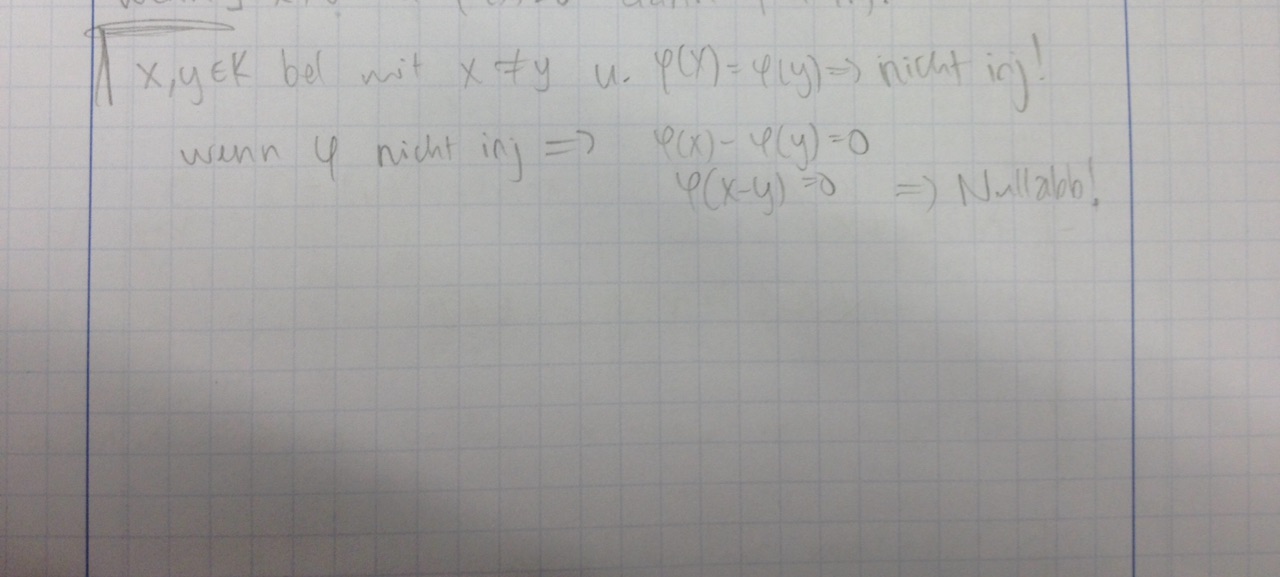 x,y∈K bel mit x ≠ y u. φ(x) = φ(y) => nicht inj!
wenn φ nicht inj => φ(x) - φ(y) = 0
φ(x-y) = 0 => Nullabb!